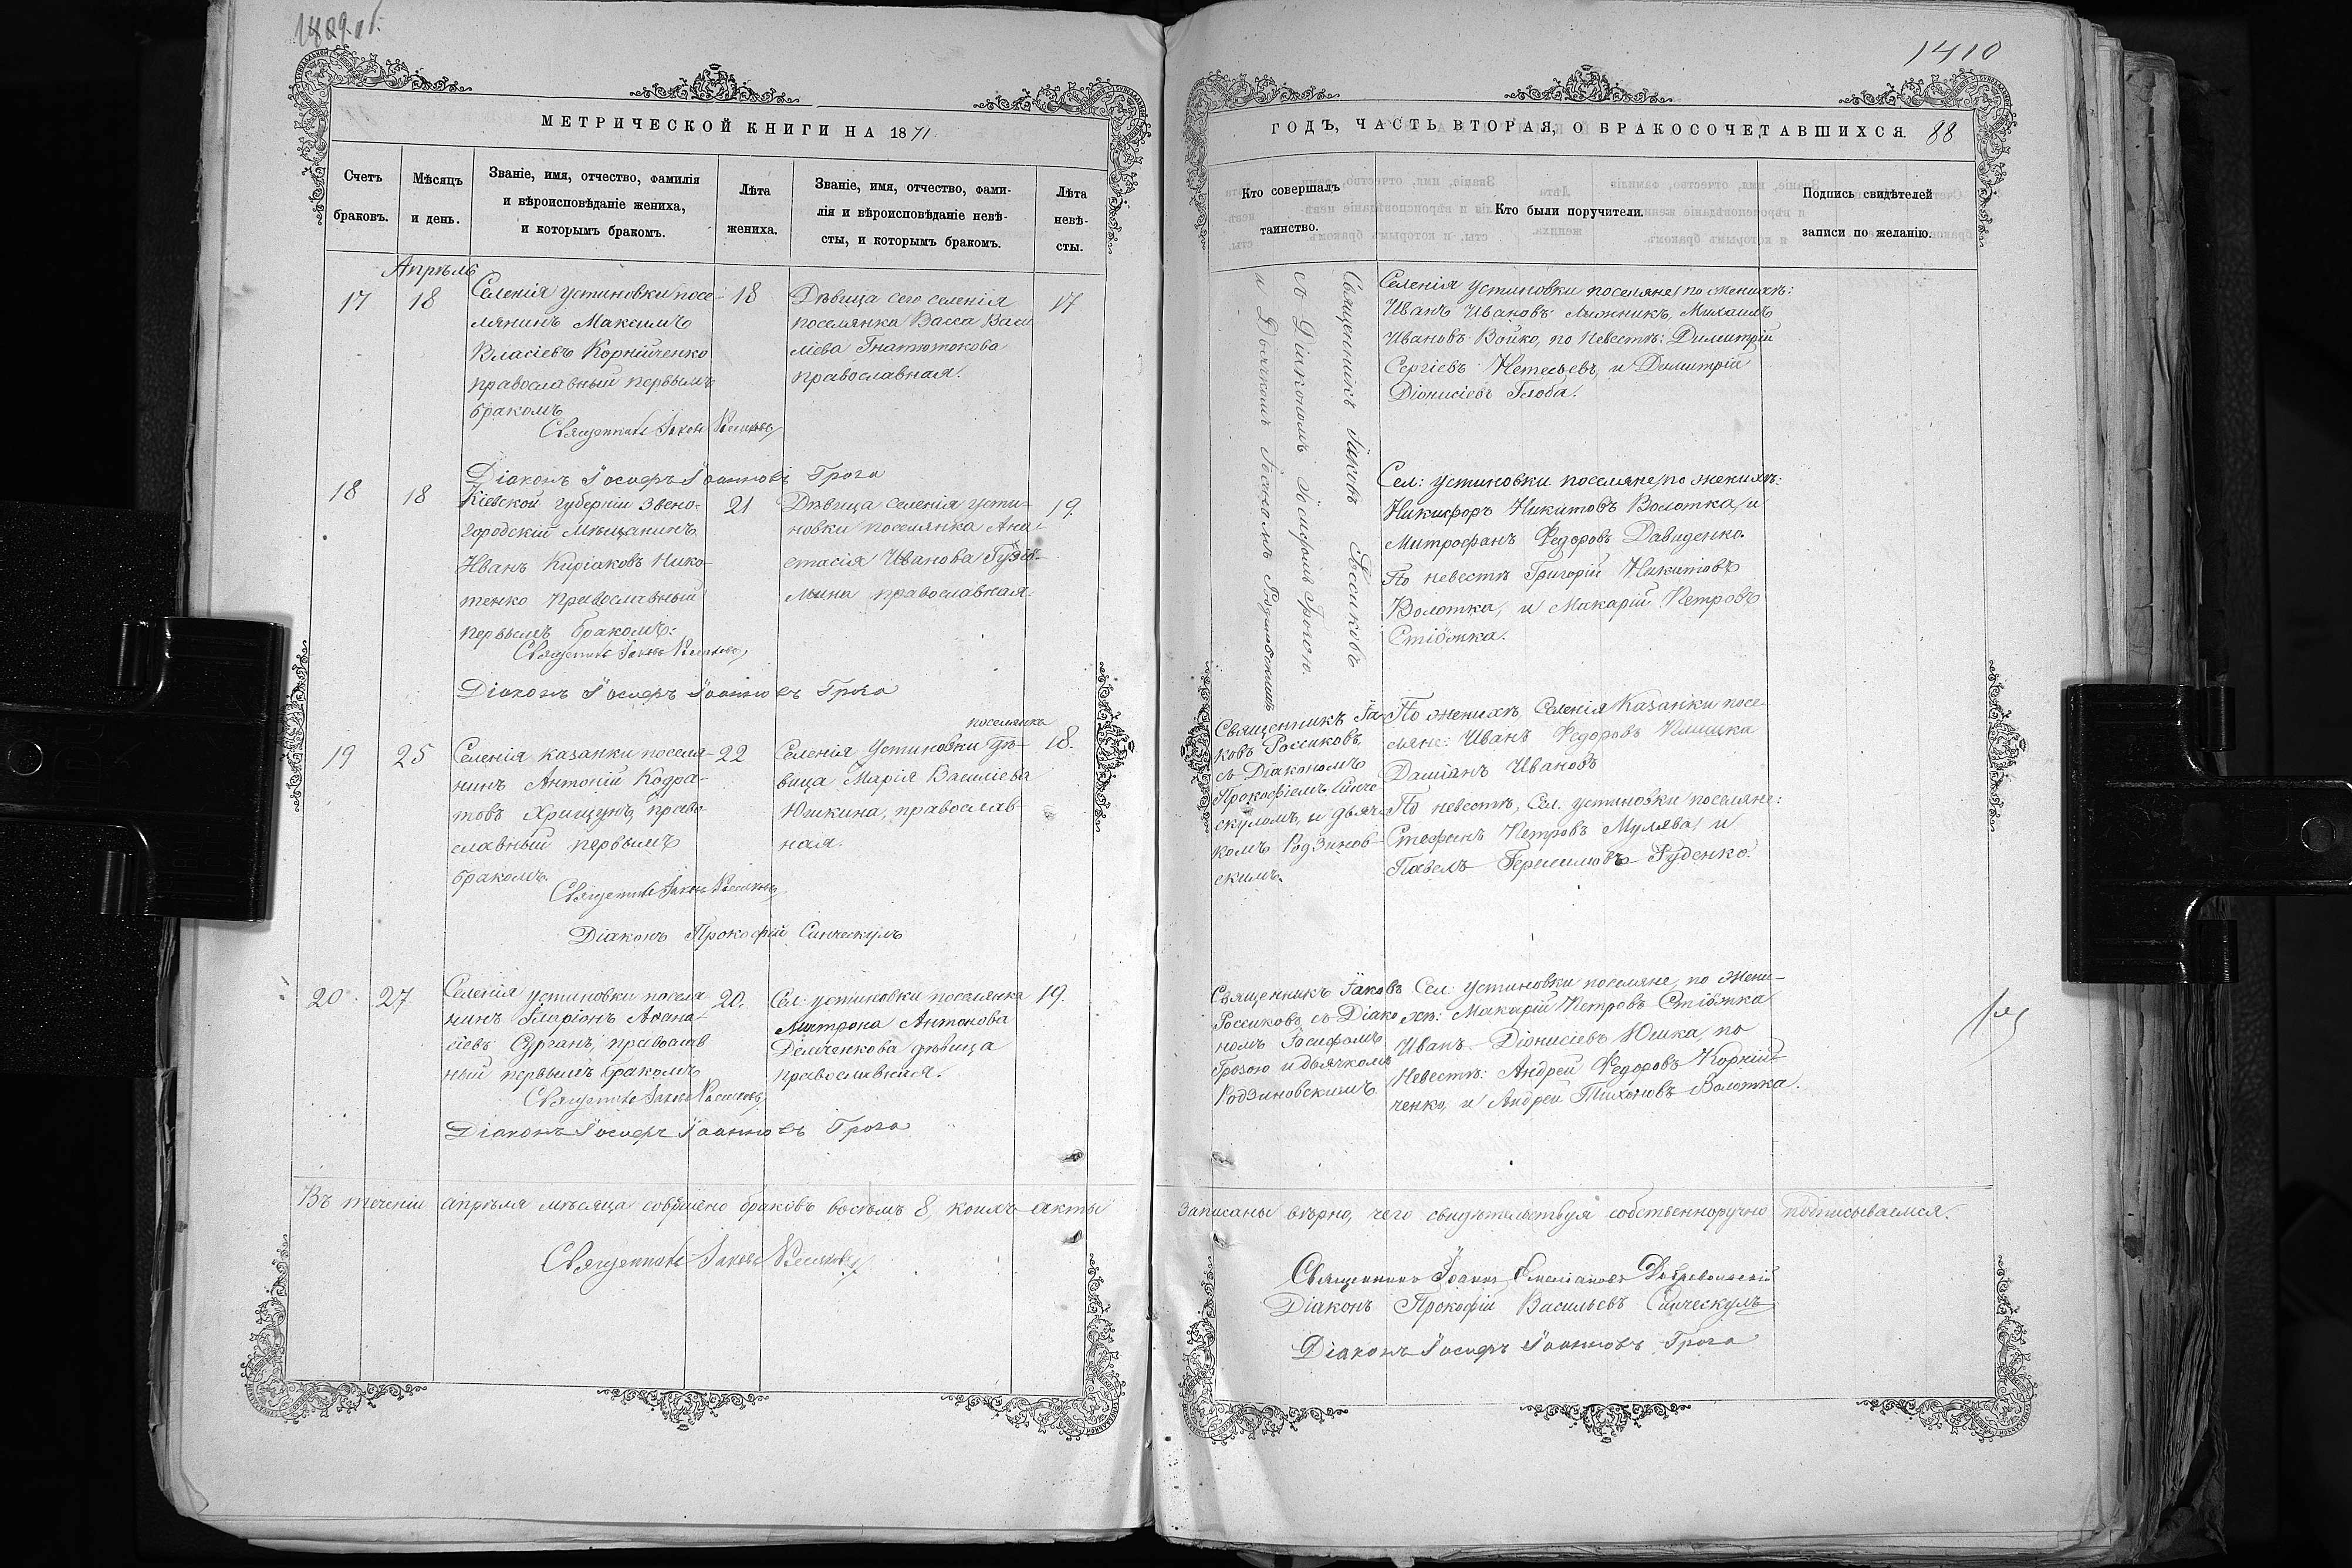 1409 об.
МЕТРИЧЕСКОЙ КНИГИ НА 1871
Счетъ браковъ.
Мѣсяцъ и день.
Званіе, имя, отчество, фамилія
и вѣроисповѣданіе жениха,
и которымъ бракомъ.
Лѣта
жениха.
Званіе, имя, отчество, фами-
лія и вѣроисповѣданіе невѣ-
сты, и которымъ бракомъ.
Лѣта
невѣ-
сты.
Апрѣль
17
18
Селенія Устиновки посе-
лянинъ Максимъ
Власіевъ Корнійченко
православный первымъ
бракомъ
18
Дѣвица сего селенія
поселянка Васса Васи
ліева Гнатюткова
православная.
17
Священникъ Іаковъ Россиковъ
Діаконъ Іосифъ Іоанновъ Гроза
18
18
Кіевской губерніи Звено-
городскій мѣщанинъ
Иванъ Киріаковъ Нико-
тенко православный
первымъ бракомъ:
21
Дѣвица селенія Усти-
новки поселянка Ана-
стасія Иванова
православная.
19.
Священникъ Іаковъ Россиковъ
Діаконъ Іосифъ Іоанновъ Гроза
19
25
Селенія Казанки поселя-
нинъ Антоній Кодра-
товъ Хрищенъ, право-
славный первымъ
бракомъ.
22
поселянка
Селенія Устиновки дѣ-
вица Марія Василіева
Юшкина, православ-
ная.
18.
Священникъ Іаковъ Россиковъ
Діаконъ Прокофій Синческулъ
20
27
Селенія Устиновки поселя
нинъ Иларіонъ Аѳана-
сіевъ Сурганъ, православ
ный первымъ бракомъ
20.
Сел: Устиновки поселянка
Матрона Антонова
Демченкова дѣвица
православная.
19.
Священникъ Іаковъ Россиковъ
Діаконъ Іосифъ Іоанновъ Гроза
Въ теченіи апрѣля мѣсяца совершено браковъ восемь 8, коихъ акты
Священникъ Іаковъ Россиковъ
1410
ГОДЪ, ЧАСТЬ ВТОРАЯ, О БРАКОСОЧЕТАВШИХСЯ 88
Кто совершалъ
таинство.
Кто были поручители.
Подпись свидѣтелей
записи по желанію.
Священникъ Іаковъ Россиковъ
съ Діакономъ Іосифомъ Грозою
и Дьячкомъ Родзиновскимъ
Селенія Устиновки поселяне, по женихѣ:
Иванъ Ивановъ Михаилъ
Ивановъ Бойко, по невестѣ: Димитрій
Сергіевъ Нетесъевъ, и Димитрій
Діонисіевъ Глоба.
Сел: Устиновки поселяне, по женихѣ:
Никифоръ Никитовъ Волотка, и
Митрофанъ Федоровъ Давиденко.
По невестѣ Григорій Никитовъ
Волотка, и Макарій Петровъ
Стіожка.
Священникъ Іа-
ковъ Россиковъ,
съ Діакономъ
Прокофіемъ Синче-
скуломъ, и дьяч-
комъ Родзинов-
скимъ.
По женихѣ, Селенія Казанки посе
ляне: Иванъ Федоровъ
Даміанъ Ивановъ
По невестѣ, Сел. Устиновки поселяне:
Стефанъ Петровъ Мулява, и
Павелъ Герасимовъ Руденко.
Священникъ Іаковъ
Россиковъ, съ Діако
номъ Іосифомъ
Грозою и дьячкомъ
Родзиновскимъ
Сел: Устиновки поселяне, по жени-
хѣ: Макарій Петровъ Стіожка
Иванъ Діонисіевъ Юшка, по
Невестѣ: Андрей Федоровъ Корній-
ченко, и Андрей Тихоновъ Волотка.
Записаны вѣрно, чего свидѣтельствуя собственноручно подписываемся.
Священникъ Іоаннъ Емеліановъ Добровольскій
Діаконъ Прокофій Васильевъ Синческулъ
Діаконъ Іосифъ Іоанновъ Гроза